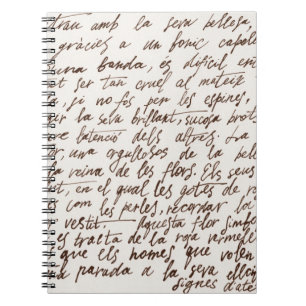 trau amb la seva bellesa
gràcies a un tònic capoll
banda, és difícil en
ser tan cruel al mateix
, si no fos per les espines,
per la seva brillant, sucosa brots
l'atenció dels altres. La
una orgullosos de la bell
la reina de les flors. Els seus
en el qual les gotes de r
com les perles, recordar lo
vestit. Aquesta flor simbo
es tracta de la roja vermell
que els homes que volen
parada a la seva elecci
signes d'ate